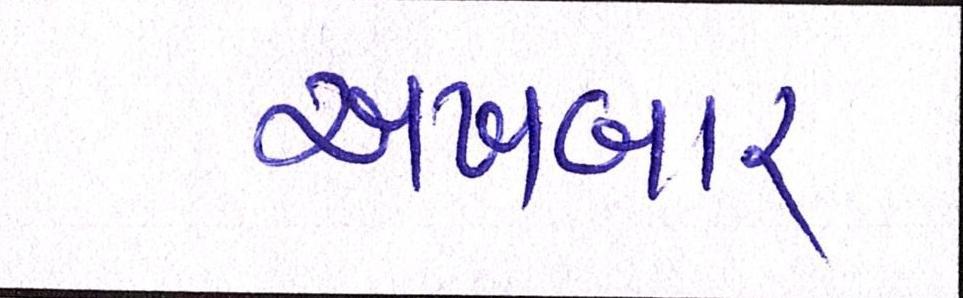 અખબાર